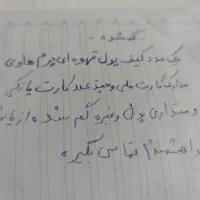 گمشده -
یک عدد کیف پول قهوه ای چرم حاوی
مدارک کارت ملی و چند عدد کارت بانکی
و مقداری پول و غیره گم شده از یاب
تماس بگیره